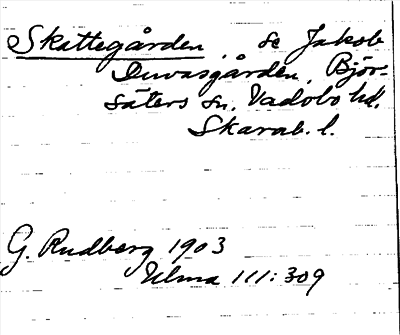 Skattegården, se Jakob
Duvasgården, Björ-
säters sn, Vadsbo hd.
Skarab. l.
G. Rudberg 1903
Ulma 111:309